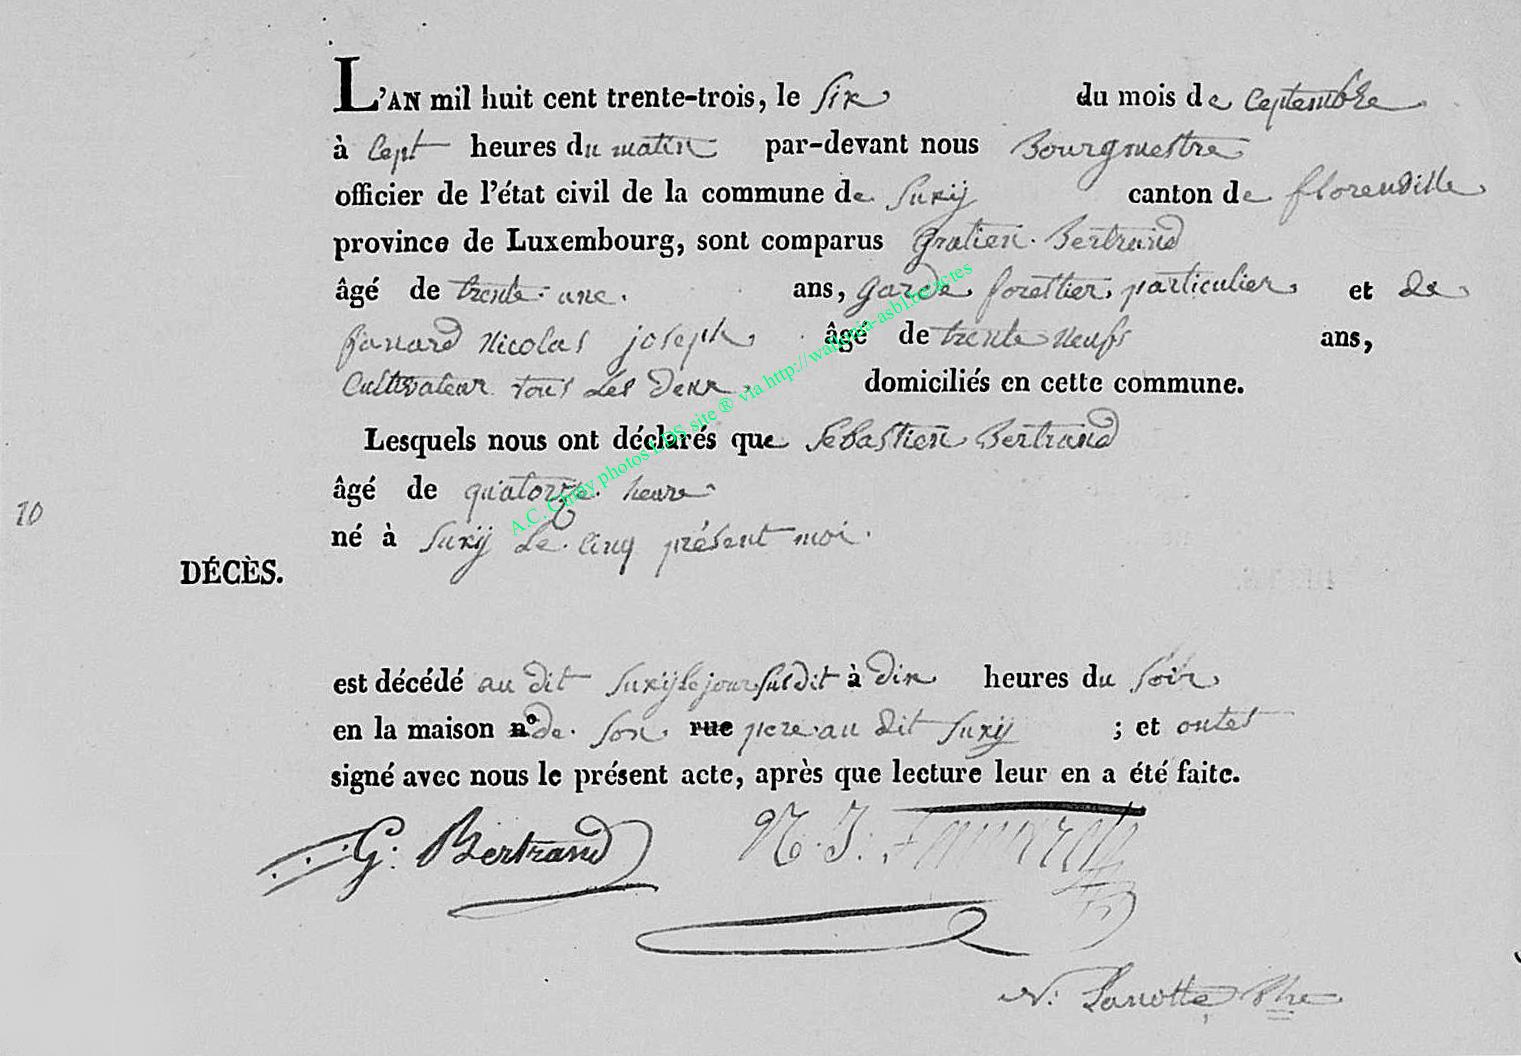 L'AN mil huit cent trente-trois, le six du mois de Ceptembre
à Cept heures du matin par-devant nous Bourgmestre
officier de l'état civil de la commune de Suxÿ canton de florenville
province de Luxembourg, sont comparus Gratien Bertrand
âgé de trente une ans, garde forestier particulier et de
fanard Nicolas joseph âgé de trente neufs ans,
Cultivateur tous Les deux domiciliés en cette commune.
Lesquels nous ont déclarés que Sebastien Bertrand
âgé de quatorze heure
10
né à Suxÿ Le cinq présent moi
DÉCÈS.
est décédé au dit Suxÿ le jour susdit à dix heures du soir
en la maison nº de son rue pere au dit Suxÿ ; et ontes
signé avec nous le présent acte, après que lecture leur en a été faite.
G. Bertrand N. J. fanard
N. Lanotte
A.C. Chiny photos LDS site ® via http://wallonia-asbl.be/actes